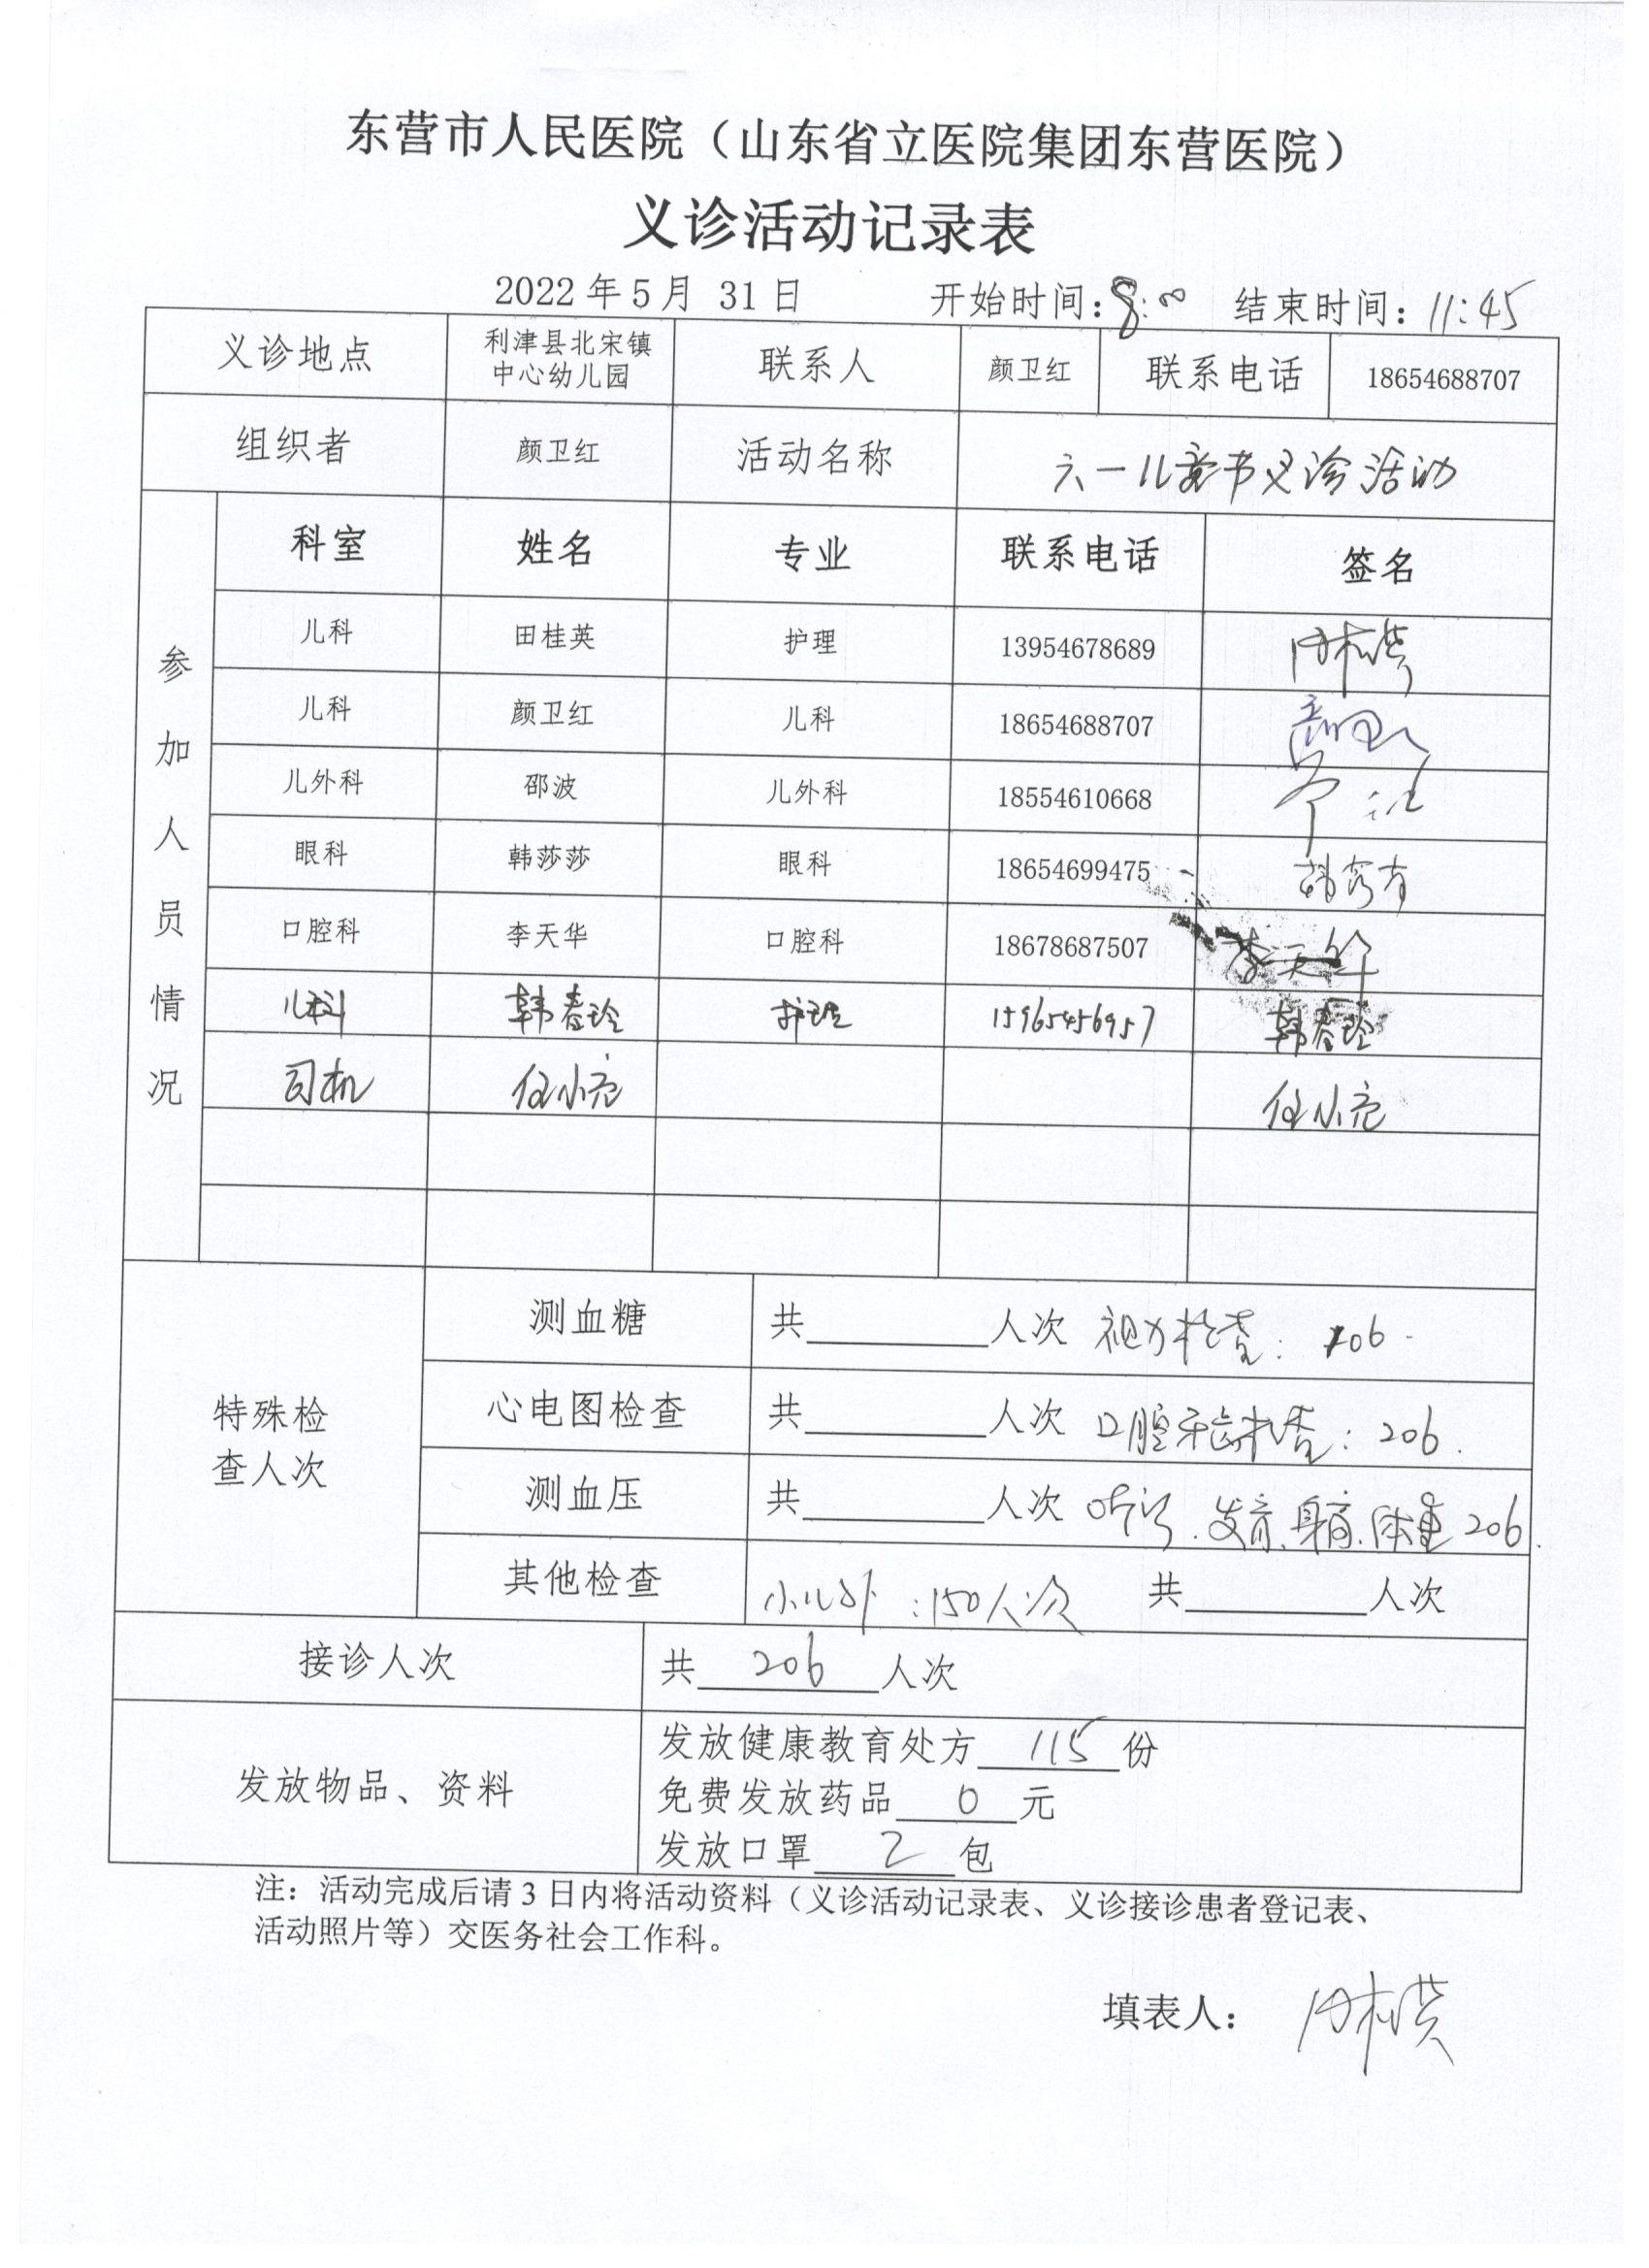 东营市人民医院（山东省立医院集团东营医院）
义诊活动记录表
2022年5月 31日 开始时间：8:00 结束时间：11:45
义诊地点 利津县北宋镇中心幼儿园 联系人 颜卫红 联系电话 18654688707
组织者 颜卫红 活动名称 六一儿童节义诊活动
参加人员情况
科室 姓名 专业 联系电话 签名
儿科 田桂英 护理 13954678689 田桂英
儿科 颜卫红 儿科 18654688707
儿外科 邵波 儿外科 18554610668
眼科 韩莎莎 眼科 18654699475 韩莎莎
口腔科 李天华 口腔科 18678687507 李天华
儿科 韩春玲 护理 15965456957 韩春玲
司机 任小亮 任小亮
特殊检查人次
测血糖 共 人次 视力检查： 206
心电图检查 共 人次 口腔牙齿检查：206.
测血压 共 人次 听诊、发育、身高、体重206.
其他检查 小儿外：150人次 共 人次
接诊人次 共 206 人次
发放物品、资料
发放健康教育处方 115 份
免费发放药品 0 元
发放口罩 2 包
注：活动完成后请3日内将活动资料（义诊活动记录表、义诊接诊患者登记表、
活动照片等）交医务社会工作科。
填表人： 田桂英